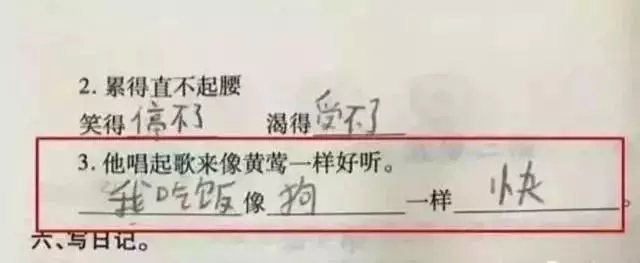 2. 累得直不起腰
笑得停不了 渴得受不了
3. 他唱起歌来像黄莺一样好听。
我吃饭像狗一样快。
六、写日记。